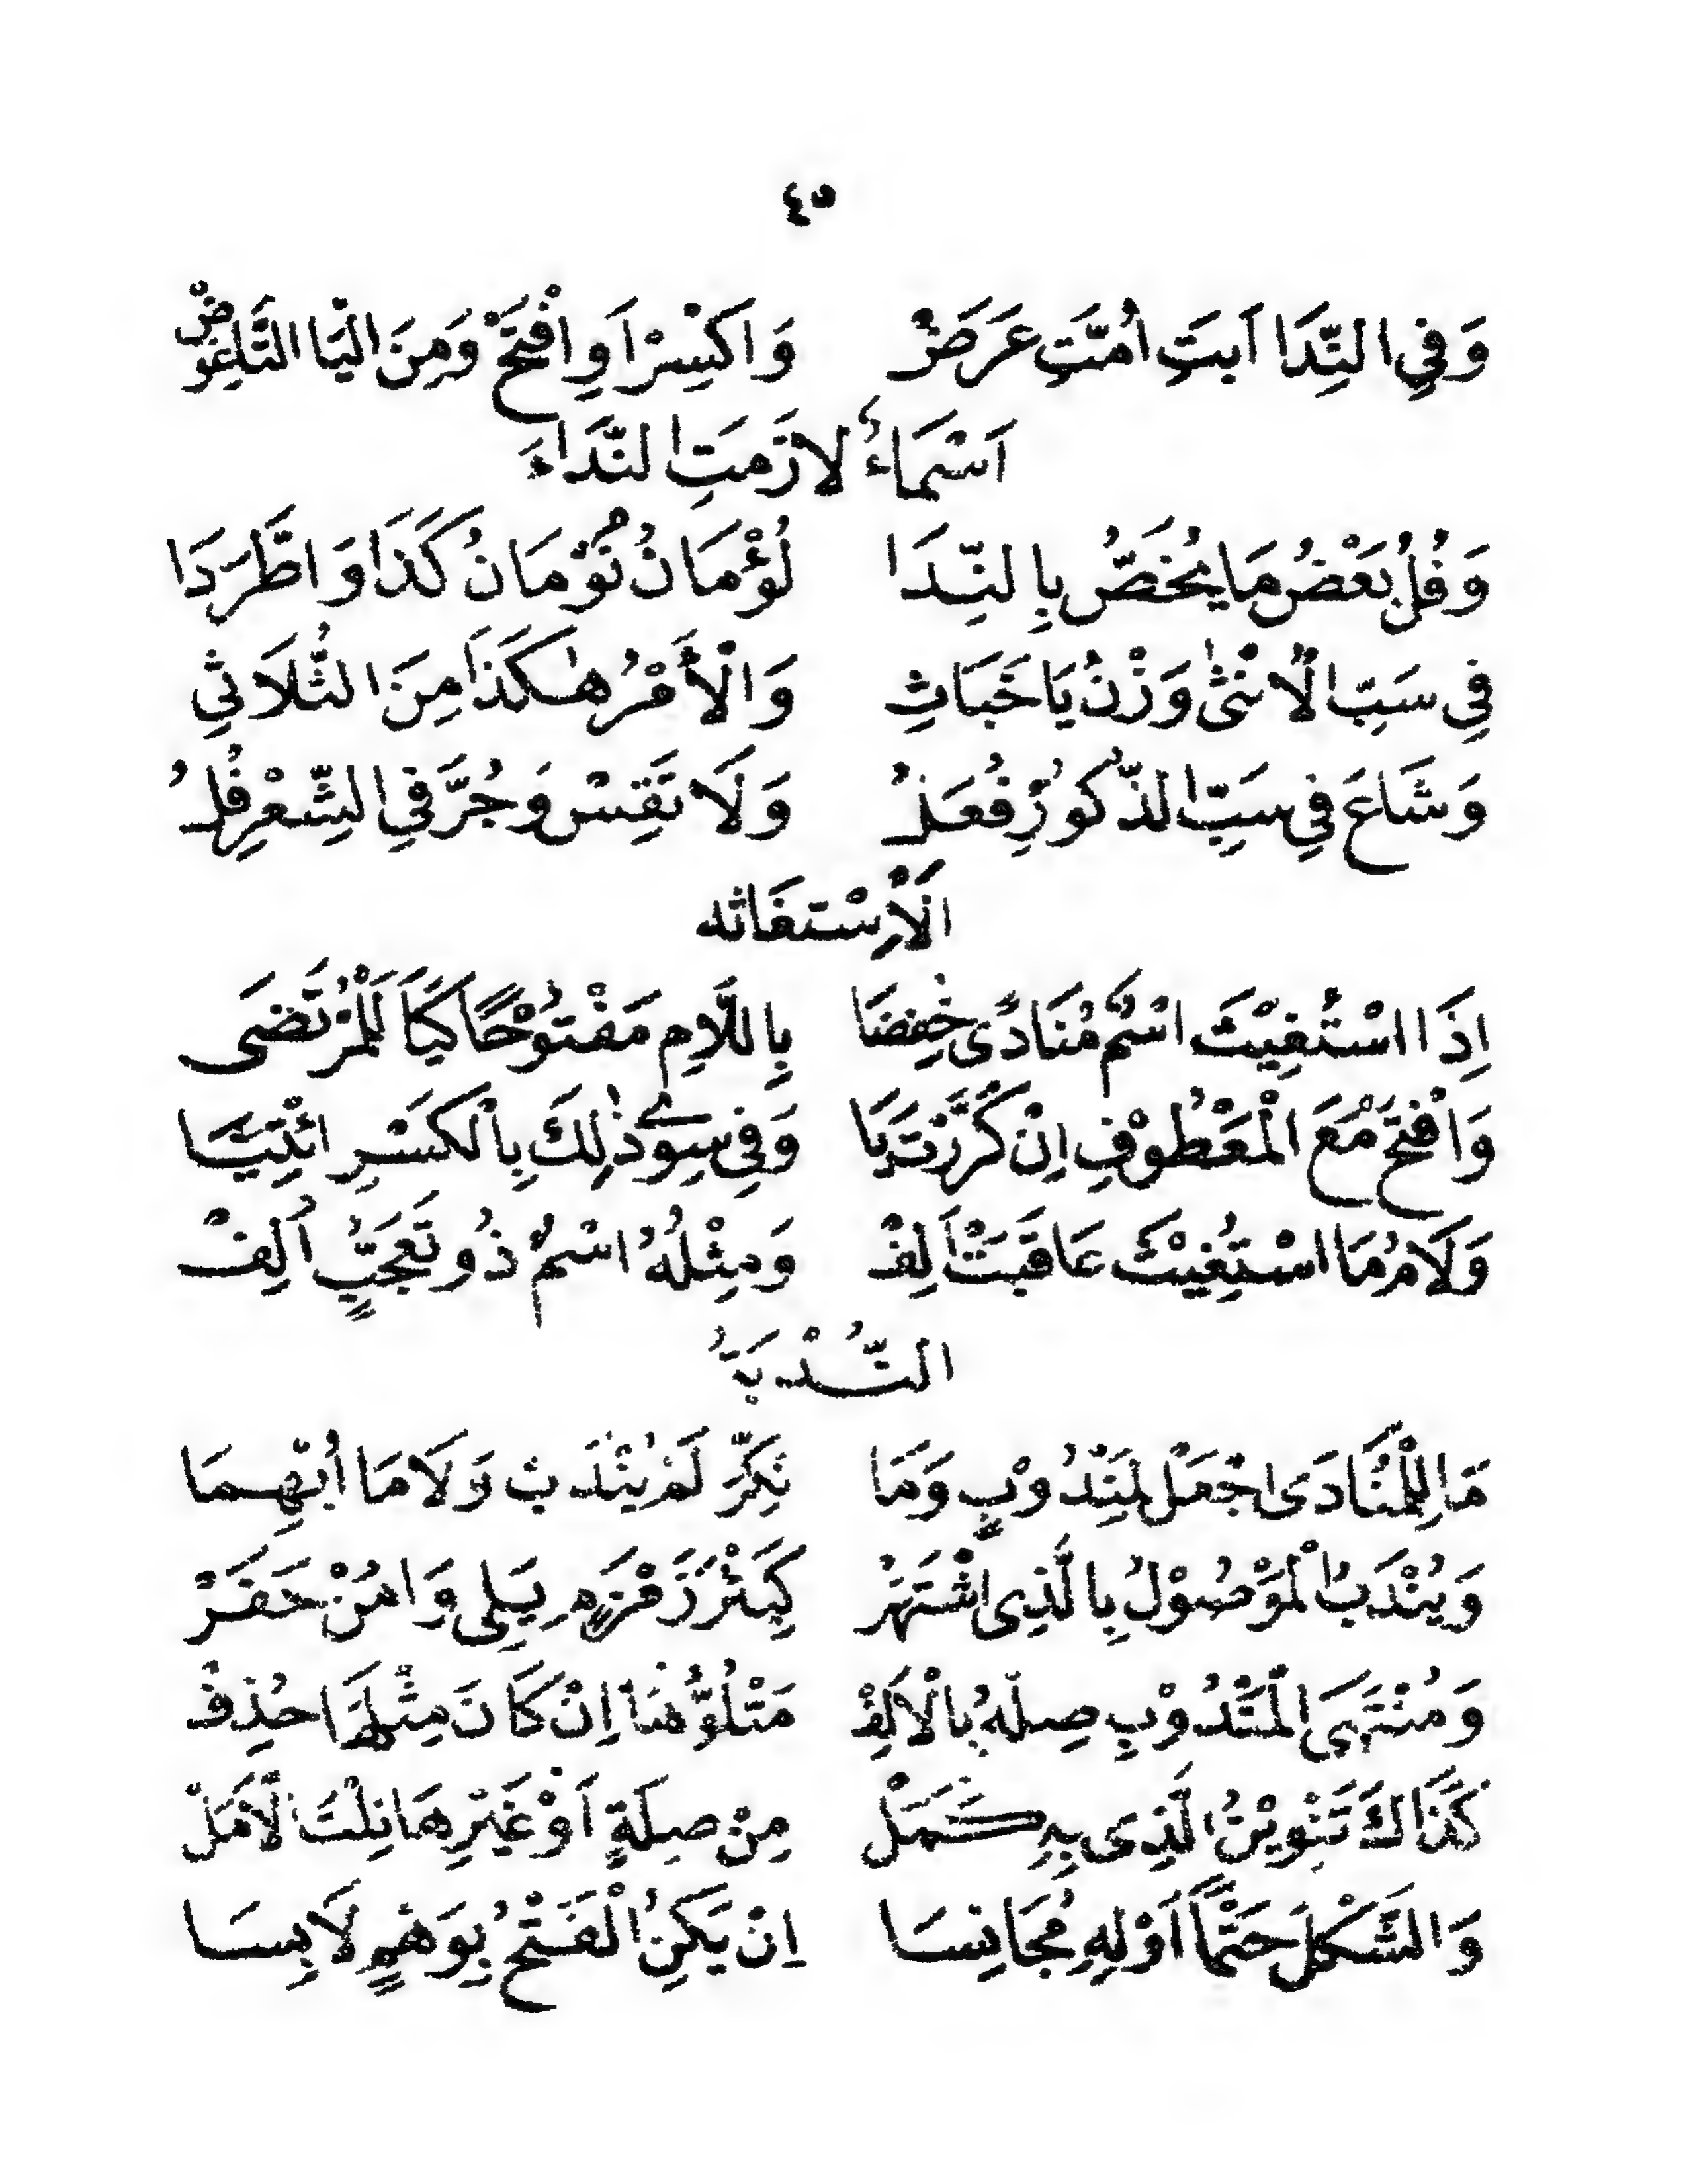 ٤٥
وَفِي النِّدَا اَبَتِ اُمَّتِ عَرَضْ وَاكْسِرْ اَوِ افْتَحْ وَمِنَ الْيَا التَّاعِوَضْ
اَسْمَاءُ لَازَمَتِ النِّدَاءَ
وَفُلُ بَعْضُ مَا يُخَصُّ بِالنِّدَا لُؤْمَانُ نَوْمَانُ كَذَا وَاطَّرَدَا
فِي سَبِّ الْاُنْثٰى وَزْنُ يَا خَبَاثِ وَالْأَمْرُ هٰكَذَا مِنَ الثُّلَاثِي
وَشَاعَ فِي سَبِّ الذُّكُوْرِ فُعَلُ وَلَا تَقِسْ وَجُرَّ فِي الشِّعْرِ فُلُ
اَلْاِسْتغَاثه
اِذَا اسْتُغِيْثَ اسْمٌ مُنَادًى خُفِضَا بِاللَّامِ مَفْتُوْحًا كَيَا لَلْمُرْتَضَى
وَافْتَحْ مَعَ الْمَعْطُوْفِ اِنْ كَرَّرْتَ يَا وَفِي سِوٰى ذٰلِكَ بِالْكَسْرِ ائْتِيَا
وَلَامُ مَا اسْتُغِيْثَ عَاقَبَتْ اَلِفْ وَمِثْلُهُ اسْمٌ ذُو تَعَجُّبٍ اُلِفْ
النُّدْبَةُ
مَا لِلْمُنَادَى اجْعَلْ لِمَنْدُوْبٍ وَمَا نُكِّرَ لَمْ يُنْدَبْ وَلَا مَا اُبْهِمَا
وَيُنْدَبُ الْمَوْصُوْلُ بِالَّذِى اشْتَهَرْ كَبِئْرَ زَمْزَمٍ يَلِى وَامَنْ حَفَرْ
وَمُنْتَهَى الْمَنْدُوْبِ صِلْهُ بِالْاَلِفْ مَتْلُوُّهَا اِنْ كَانَ مِثْلَهَا حُذِفْ
كَذَاكَ تَنْوِيْنُ الَّذِى بِهِ كَمَلْ مِنْ صِلَةٍ اَوْ غَيْرِهَا نِلْتَ الْاَمَلْ
وَالشَّكْلَ حَتْمًا اَوْلِهِ مُجَانِسَا اِنْ يَكُنِ الْفَتْحُ بِوَهْمٍ لَابِسَا